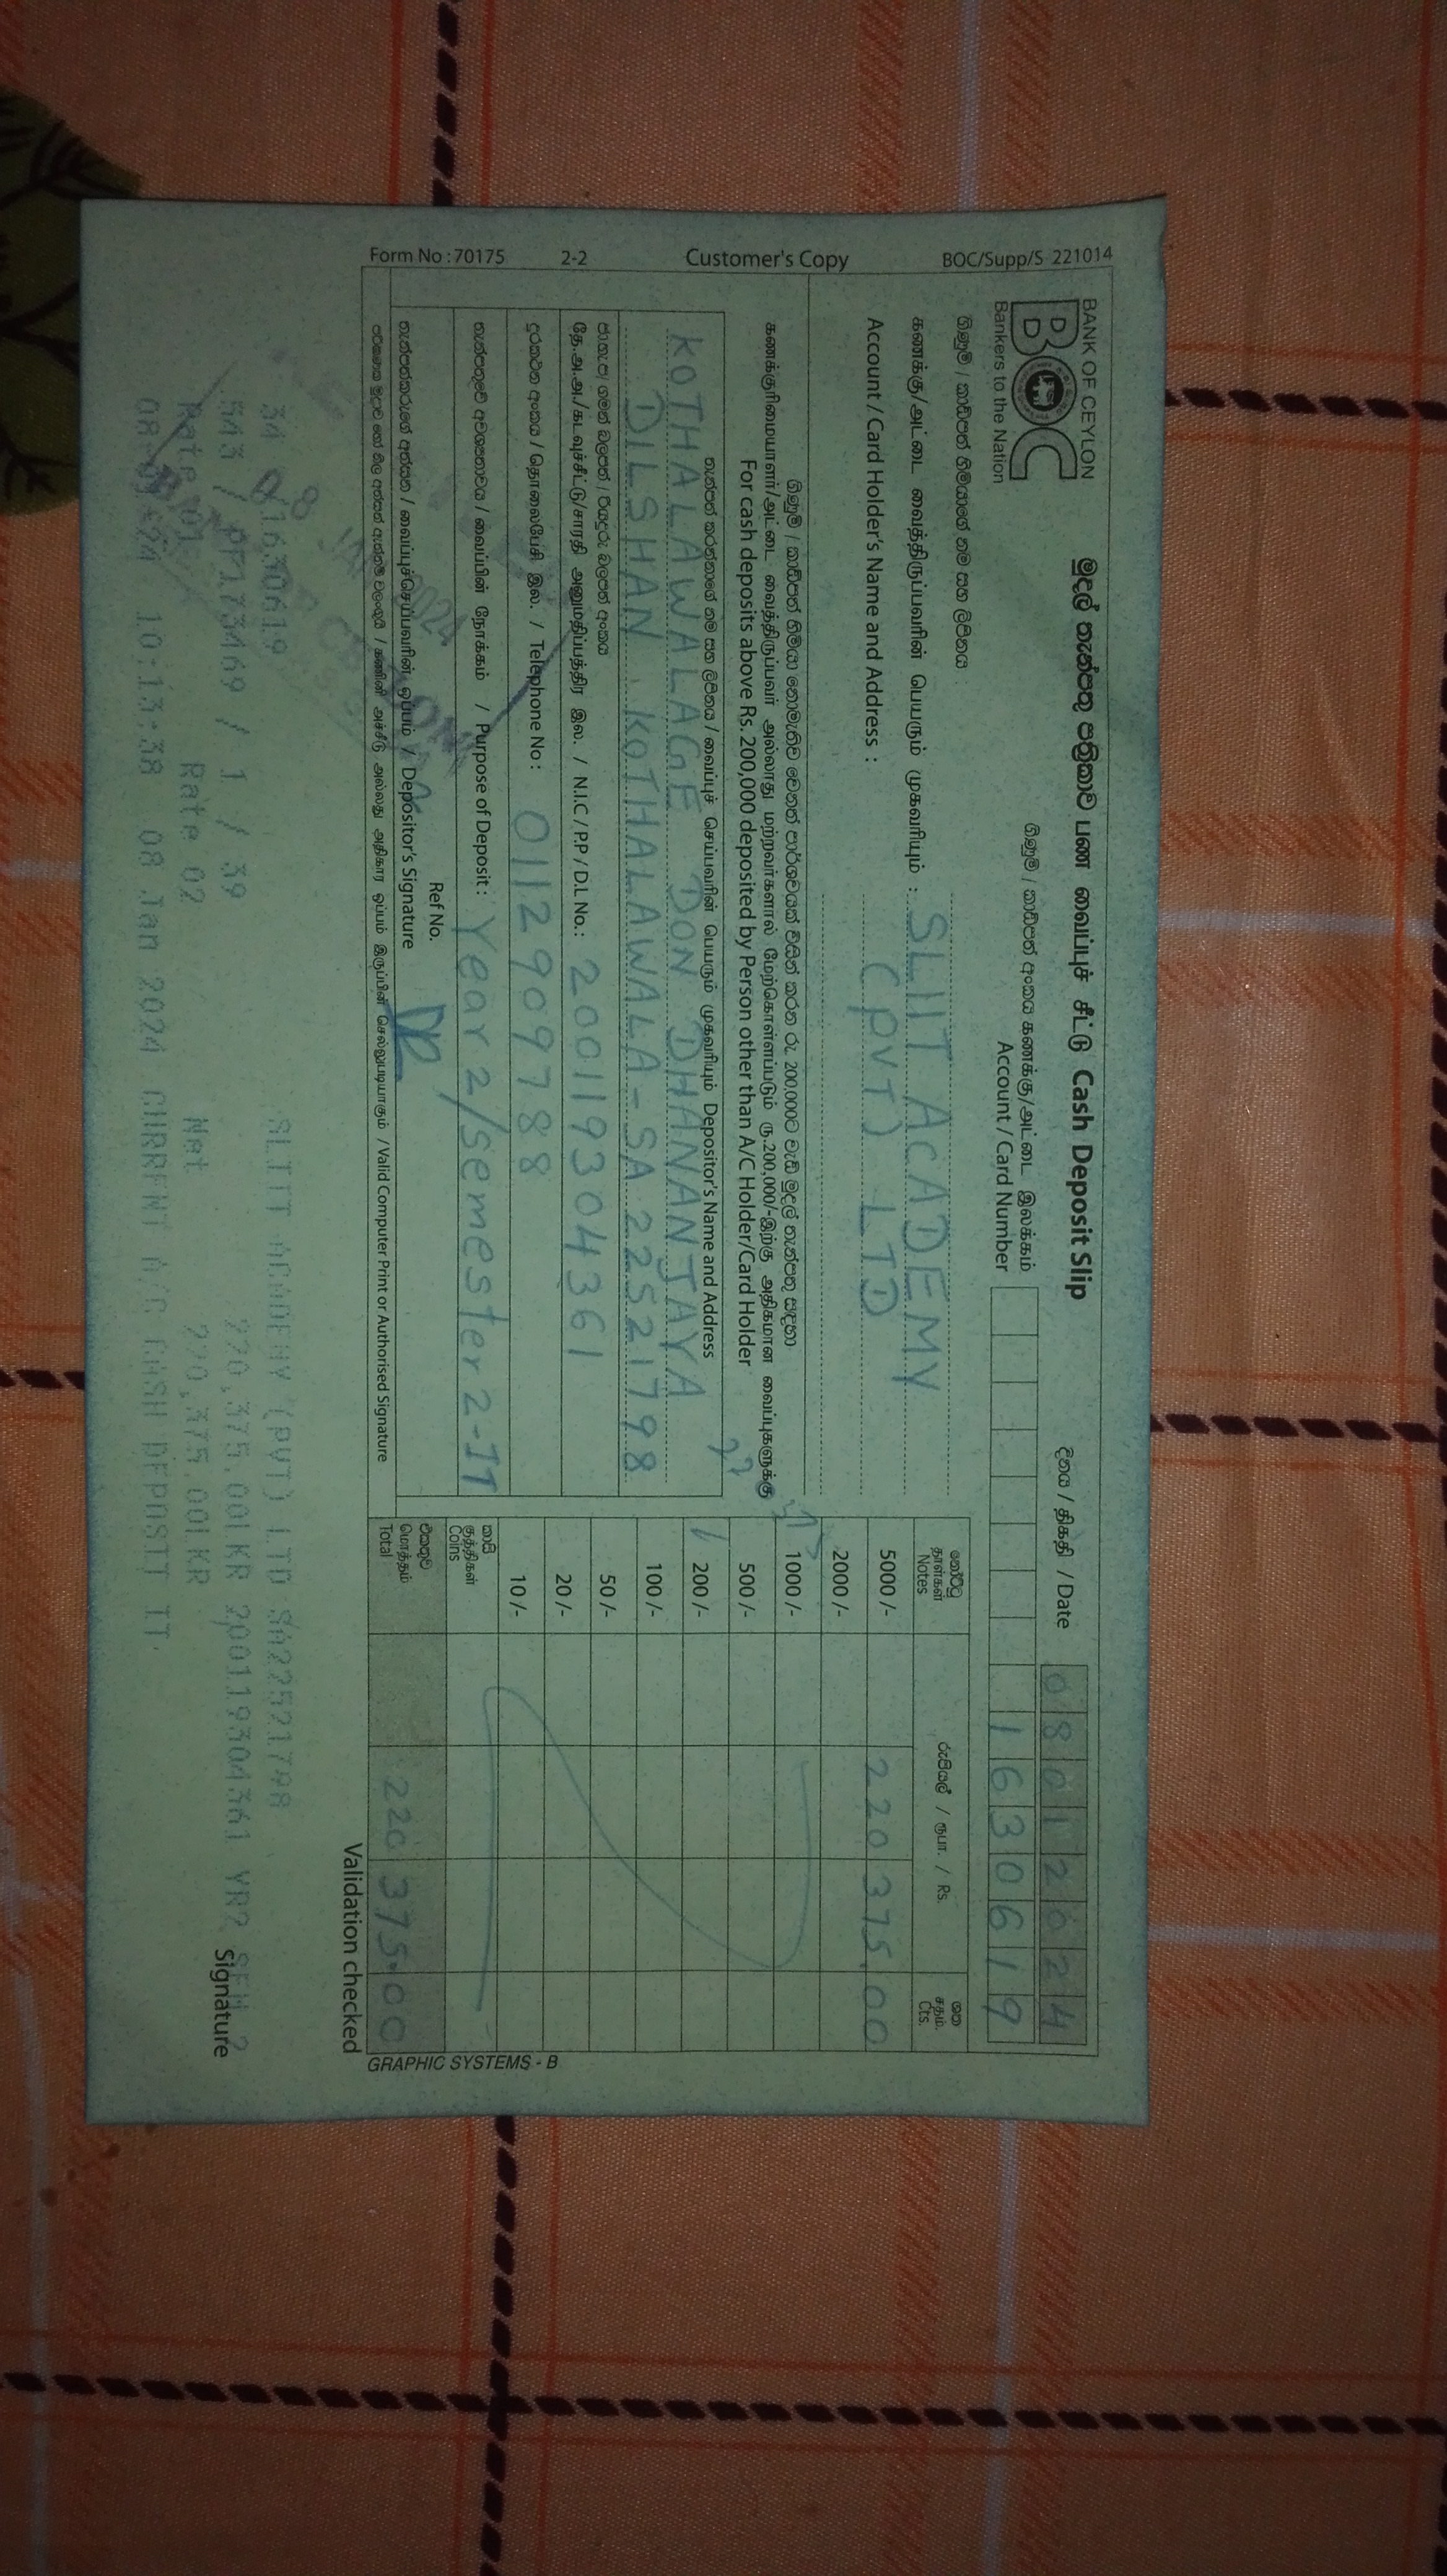 BOC/Supp/S 221014
Customer's Copy
2-2
Form No : 70175
BANK OF CEYLON
BOC
Bankers to the Nation
මුදල් තැන්පතු පත්‍රිකාව பண வைப்புச் சீட்டு Cash Deposit Slip
දිනය / திகதி / Date 08 01 2024
ගිණුම් / කාඩ්පත් අංකය கணக்கு/அட்டை இலக்கம்
Account / Card Number 1 6 3 0 6 1 9
ගිණුම් / කාඩ්පත් හිමියාගේ නම සහ ලිපිනය
கணக்கு/அட்டை வைத்திருப்பவரின் பெயரும் முகவரியும் : SLIIT ACADEMY
Account / Card Holder's Name and Address : (PVT) LTD
ගිණුම් / කාඩ්පත් හිමියා නොමැතිව වෙනත් පාර්ශවයක් විසින් කරන රු. 200,000ට වැඩි මුදල් තැන්පතු සඳහා
கணக்குரிமையாளர்/அட்டை வைத்திருப்பவர் அல்லாது மற்றவர்களால் மேற்கொள்ளப்படும் ரூ.200,000/-இற்கு அதிகமான வைப்புகளுக்கு
For cash deposits above Rs. 200,000 deposited by Person other than A/C Holder/Card Holder
තැන්පත් කරන්නාගේ නම සහ ලිපිනය / வைப்புச் செய்பவரின் பெயரும் முகவரியும் Depositor's Name and Address
KOTHALAWALAGE DON DHANANJAYA
DILSHAN KOTHALAWALA - SA 22521798
ජා.හැ.ප/ ගමන් බලපත් / රියදුරු බලපත් අංකය
தே.அ.அ./கடவுச்சீட்டு/சாரதி அனுமதிப்பத்திர இல. / N.I.C / P.P / D.L No.: 200119304361
දුරකථන අංකය / தொலைபேசி இல. / Telephone No : 0112909788
තැන්පතුවේ අවශ්‍යතාවය / வைப்பின் நோக்கம் / Purpose of Deposit : Year 2/semester 2-IT
Ref No.
තැන්පත්කරුගේ අත්සන / வைப்புச்செய்பவரின் ஒப்பம் / Depositor's Signature
/ Valid Computer Print or Authorised Signature
නෝට්ටු
தாள்கள்
Notes
රුපියල් / ரூபா. / Rs.
ශත
சதம்.
Cts.
5000 /- 220 375.00
2000 /-
1000 /-
500 /-
200 /-
100 /-
50 /-
20 /-
10 /-
කාසි
குத்திகள்
Coins
එකතුව
மொத்தம்
Total 220 375.00
Validation checked
GRAPHIC SYSTEMS - B
34 0/1630619 SLIIT ACADEMY (PVT) LTD SA22521798
543 / PF173469 / 1 / 39 220,375.00LKR 200119304361 YR2 SEM 2
Rate 01 Rate 02 Net 220,375.00LKR
Signature
08-01-24 10:13:38 08 Jan 2024 CURRENT A/C CASH DEPOSIT IT